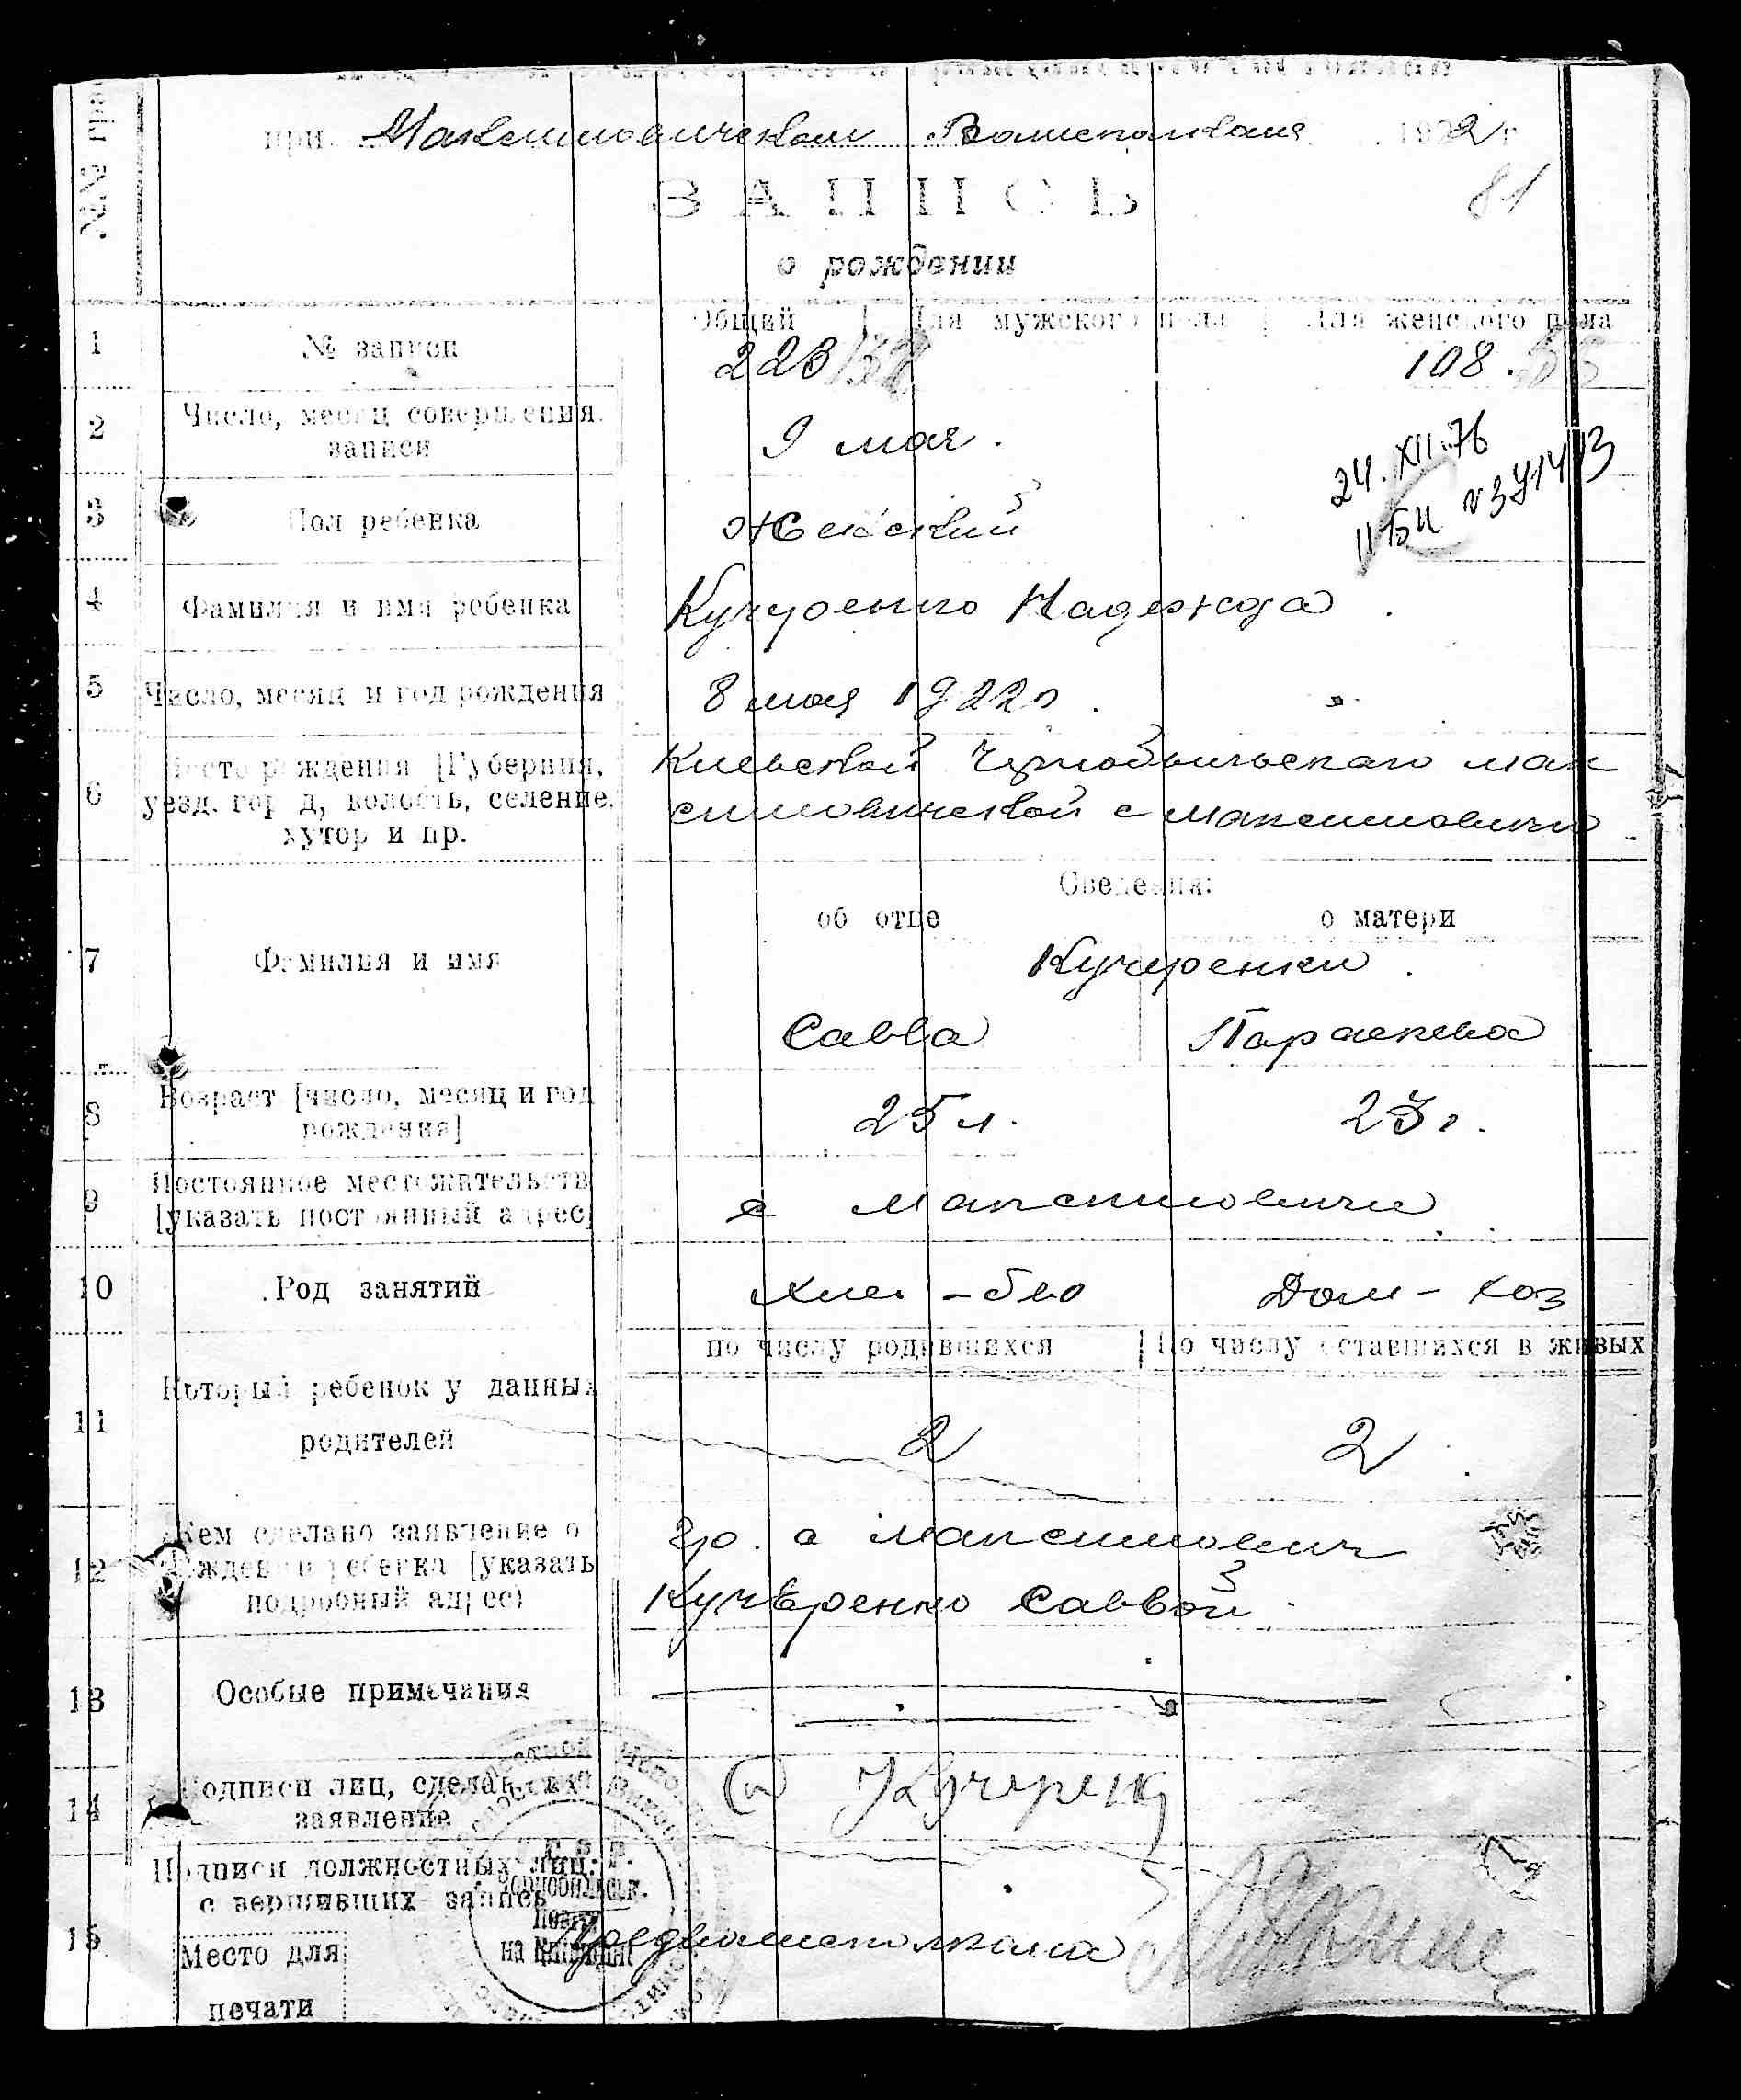 при Максимовическом Волисполкоме 1922 г
81
ЗАПИСЬ
о рождении
Общий Для мужского пола Для женского пола
1 № записи 223 108.
2 Число, месяц совершения записи 9 мая.
24.XII.76
3 Пол ребенка Женский
4 Фамилия и имя ребенка Кучуренко Надежда.
5 Число, месяц и год рождения 8 мая 1922 г.
6 Место рождения [Губерния, Киевской Чернобыльскаго мак
уезд, город, волость, селение, симовической с максимовичи.
хутор и пр.
Сведения:
об отце о матери
7 Фамилия и имя Кучеренки.
Савва Параскева
8 Возраст [число, месяц и год рождения] 25 л. 23 г.
9 Постоянное местожительств
[указать постоянный адрес] с максимовичи
10 Род занятий Дом-хоз
по числу родившихся По числу оставшихся в живых
11 Который ребенок у данных
родителей 2 2
12 Кем сделано заявление о гр. с максимович
рождении ребенка [указать Кучеренко Саввой.
подробный адрес)
13 Особые примечания
14 Подписи лиц, сделавших
заявление Кучеренк
15 Подписи должностных лиц,
совершивших запись
Предволисполкома
Место для
печати